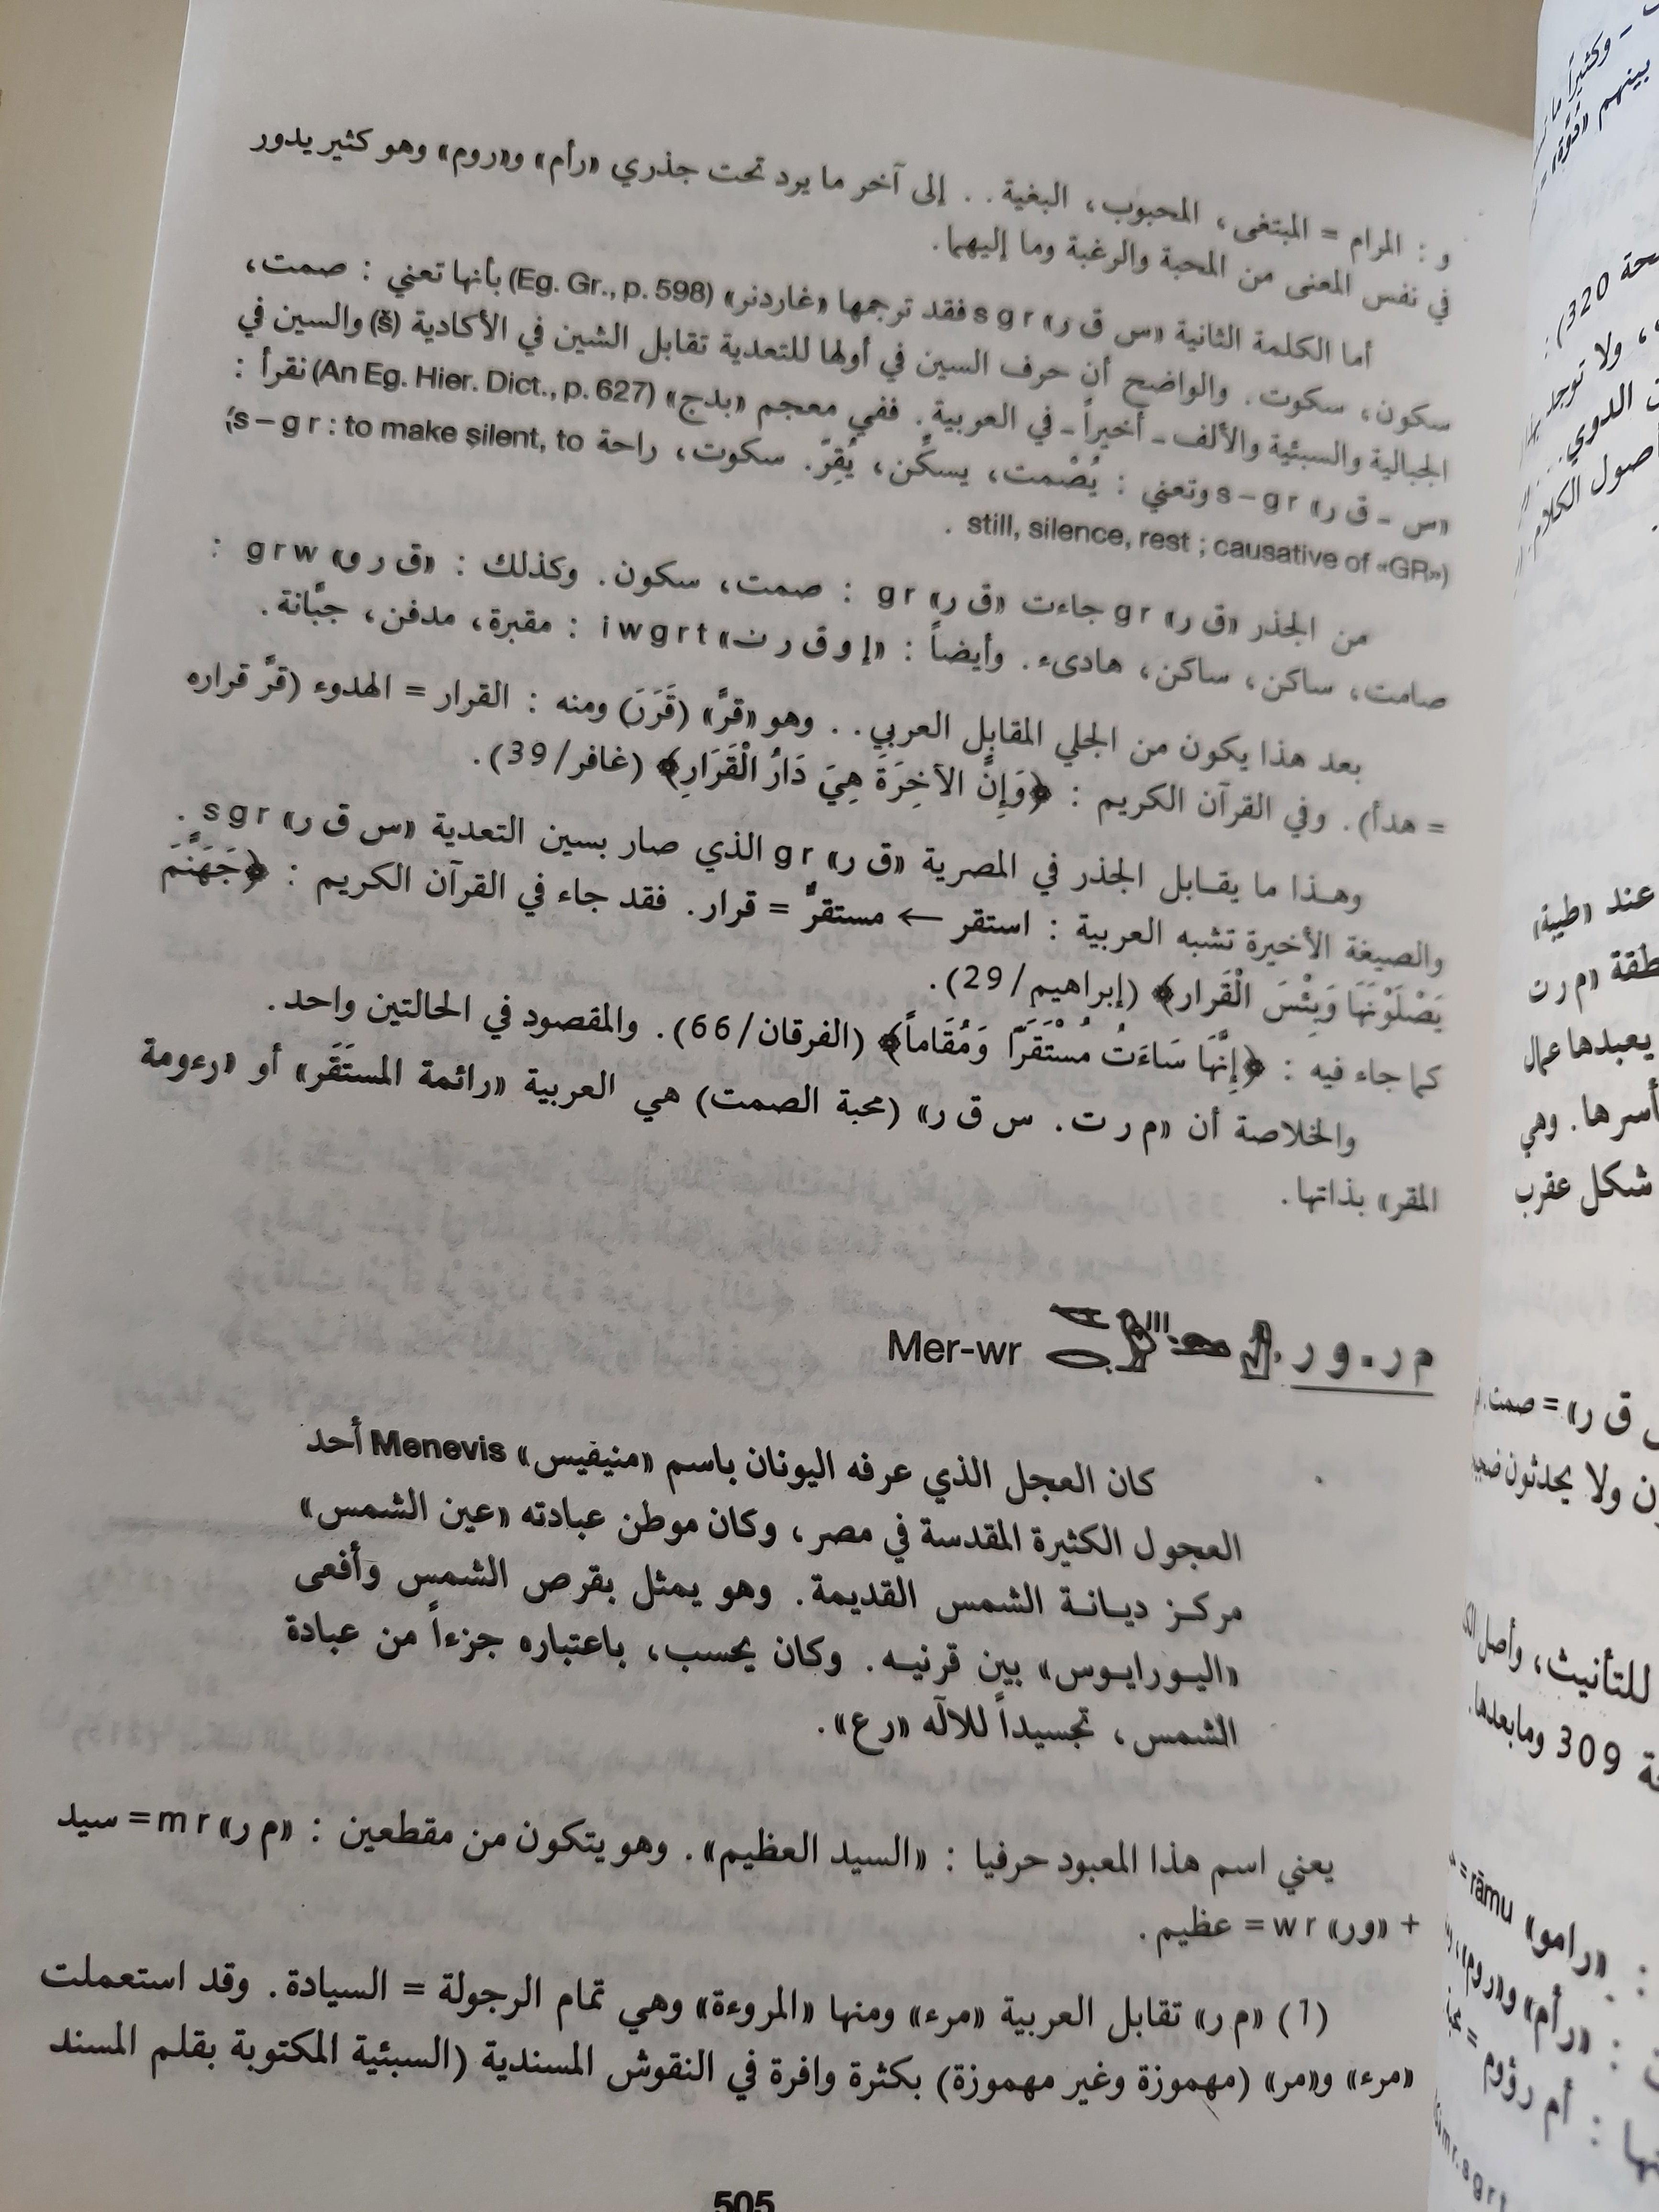 و : المرام = المبتغى، المحبوب، البغية . . إلى آخر ما يرد تحت جذري «رأم» و«روم» وهو كثير يدور
في نفس المعنى من المحبة والرغبة وما إليهما.
أما الكلمة الثانية «س ق ر» s g r فقد ترجمها «غاردنر» (Eg. Gr., p. 598) بأنها تعني : صمت،
سكون، سكوت. والواضح أن حرف السين في أولها للتعدية تقابل الشين في الأكادية (š) والسين في
الجبالية والسبئية والألف - أخيراً - في العربية. ففي معجم «بدج» (An Eg. Hier. Dict., p. 627) نقرأ :
«س - ق ر» s – g r وتعني : يُصْمت، يسكِّن، يُقِرّ. سكوت، راحة s – g r : to make silent, to
still, silence, rest ; causative of «GR») .
من الجذر «ق ر» g r جاءت «ق ر» g r : صمت، سكون. وكذلك : «ق ر و» g r w :
صامت، ساكن، ساكن، هادىء. وأيضاً : «إ و ق ر ت» i w g r t : مقبرة، مدفن، جبَّانة.
بعد هذا يكون من الجلي المقابل العربي . . وهو «قرَّ» (قَرَرَ) ومنه : القرار = الهدوء (قرَّ قراره
= هدأ). وفي القرآن الكريم : ﴿وَإِنَّ الآخِرَةَ هِيَ دَارُ الْقَرَارِ﴾ (غافر/39).
وهـذا ما يقـابل الجذر في المصرية «ق ر» g r الذي صار بسين التعدية «س ق ر» s g r .
والصيغة الأخيرة تشبه العربية : استقر ← مستقرٌّ = قرار. فقد جاء في القرآن الكريم : ﴿جَهَنَّمَ
يَصْلَوْنَهَا وَبِئْسَ الْقَرار﴾ (إبراهيم/29).
كما جاء فيه : ﴿إِنَّهَا سَاءَتْ مُسْتَقَرّاً وَمُقَاماً﴾ (الفرقان/66). والمقصود في الحالتين واحد.
والخلاصة أن «م ر ت. س ق ر» (محبة الصمت) هي العربية «رائمة المستَقَر» أو «رءومة
المقر» بذاتها.
م ر. و ر Mer-wr
كان العجل الذي عرفه اليونان باسم «منيفيس» Menevis أحد
العجول الكثيرة المقدسة في مصر، وكان موطن عبادته «عين الشمس»
مركـز ديـانـة الشمس القديمة. وهو يمثل بقرص الشمس وأفعى
«اليـورايـوس» بين قرنيـه. وكان يحسب، باعتباره جزءاً من عبادة
الشمس، تجسيداً للالَه «رع».
يعني اسم هذا المعبود حرفيا : «السيد العظيم». وهو يتكون من مقطعين : «م ر» m r = سيد
+ «ور» w r = عظيم.
(1) «م ر» تقابل العربية «مرء» ومنها «المروءة» وهي تمام الرجولة = السيادة. وقد استعملت
«مرء» و«مر» (مهموزة وغير مهموزة) بكثرة وافرة في النقوش المسندية (السبئية المكتوبة بقلم المسند
505